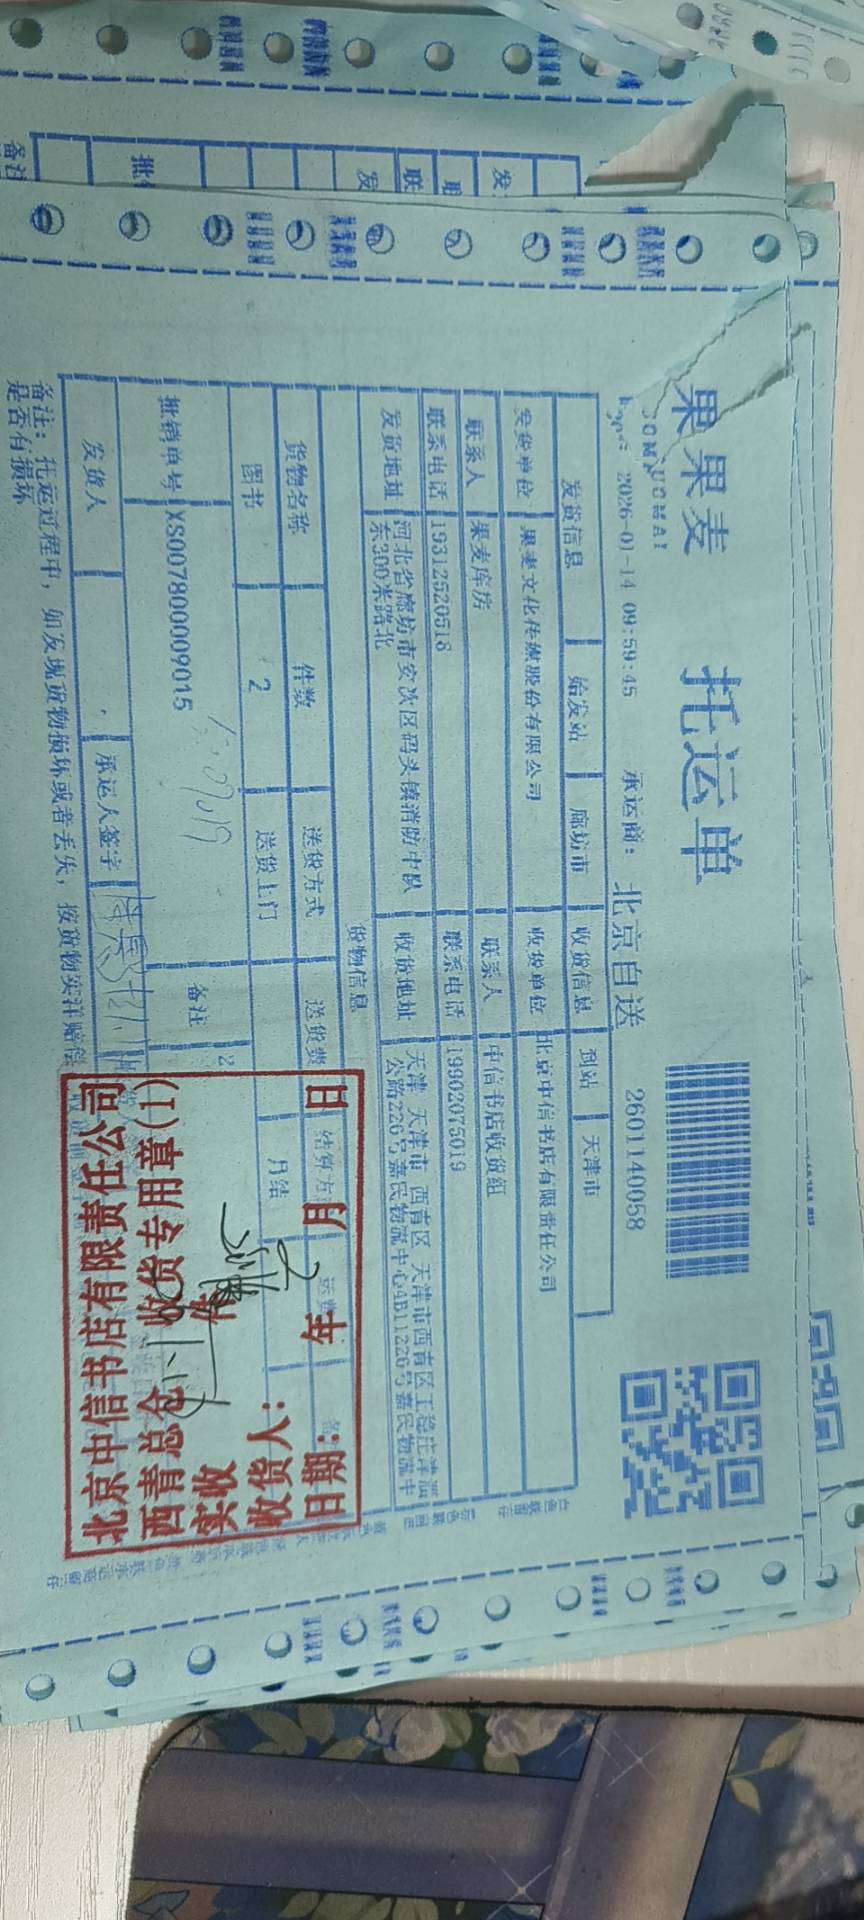 果果麦 托运单
2026-01-14 09:59:45 承运商: 北京自送 2601140058
发货信息 始发站 廊坊市 收货信息 到站 天津市
发货单位 果麦文化传媒股份有限公司 收货单位 北京中信书店有限责任公司
联系人 果麦库房 联系人 中信书店收货组
联系电话 19312520518 联系电话 19902075019
发货地址 河北省廊坊市安次区码头镇消防中队
东300米路北
收货地址 天津 天津市 西青区 天津市西青区王稳庄津淄
公路226号嘉民物流中心4B11226号嘉民物流中
货物信息
货物名称 件数 送货方式 送货费 结算方 运费
图书 2 送货上门 月结
批销单号 XS007800009015 备注
发货人 承运人签字
备注: 托运过程中, 如发现货物损坏或者丢失, 按货物实洋赔偿
是否有损坏
北京中信书店有限责任公司
西青总仓 收货专用章(1)
实收 件
收货人:
日期: 年 月 日